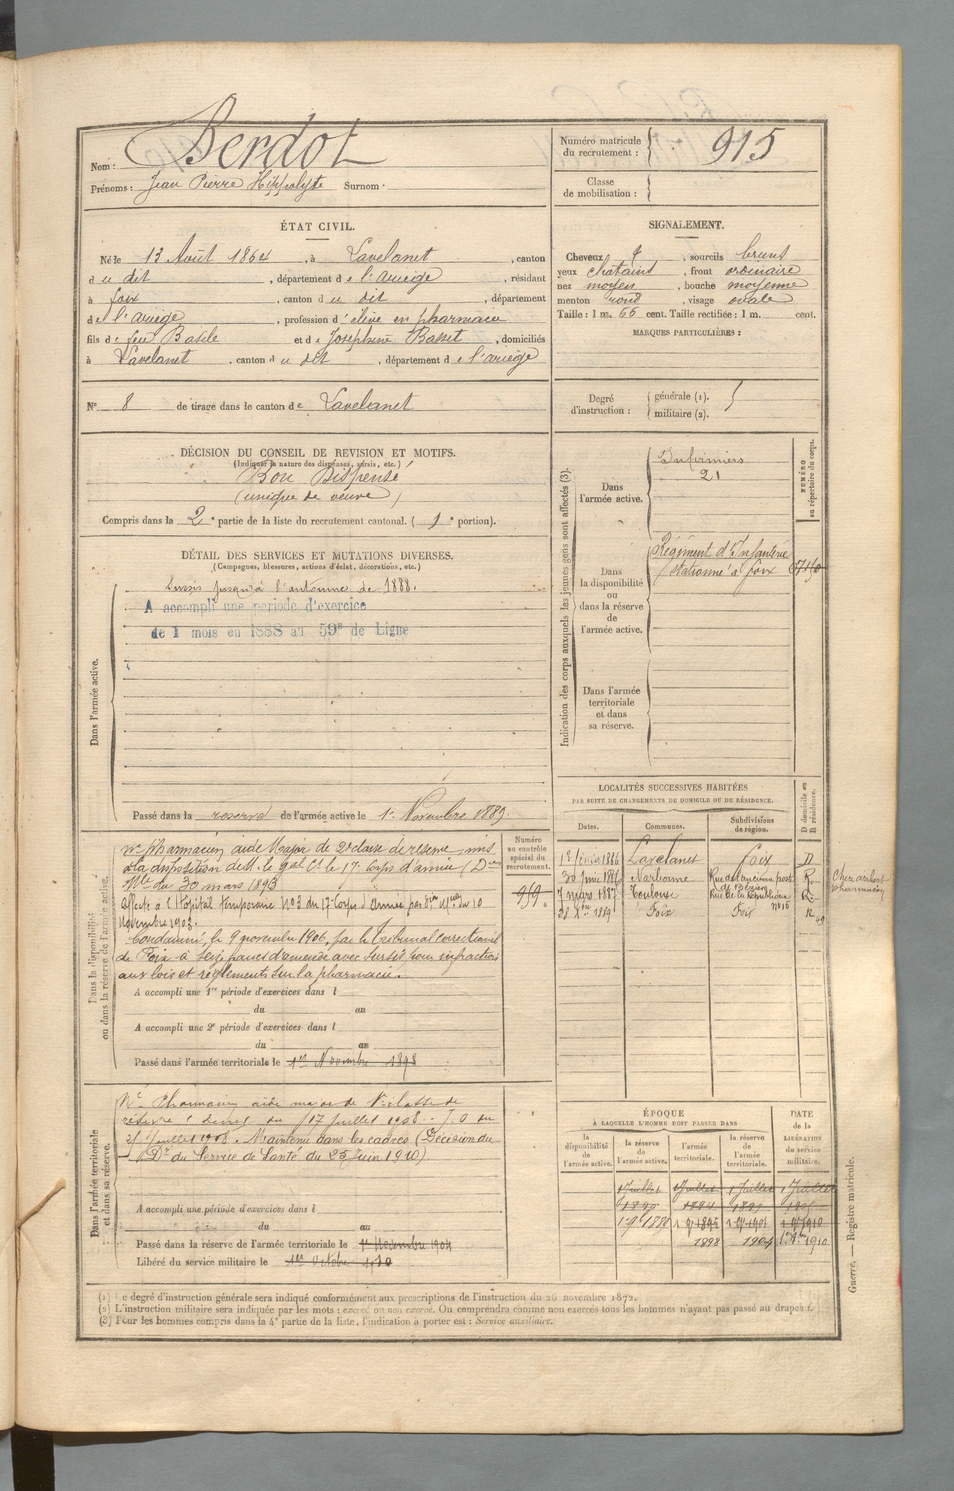 Nom : Berdot
Prénoms : Jean Pierre Hippolyte Surnom :
Numéro matricule du recrutement : 915
Classe de mobilisation :
ÉTAT CIVIL.
Né le 13 Août 1864, à Lavelanet, canton
du dit, département de l'ariège, résidant
à foix, canton du dit, département
de l'ariège, profession d'élève en pharmacie
fils de feu Basile et de Josephine Basset, domiciliés
à Lavelanet, canton du dit, département de l'ariège
SIGNALEMENT.
Cheveux, sourcils bruns
yeux chatains, front ordinaire
nez moyen, bouche moyenne
menton rond, visage ovale
Taille : 1 m. 66 cent. Taille rectifiée : 1 m. cent.
MARQUES PARTICULIÈRES :
N° 8 de tirage dans le canton de Lavelanet
Degré d'instruction : générale (1). 3
militaire (2).
DÉCISION DU CONSEIL DE REVISION ET MOTIFS.
(Indiquer la nature des dispenses, sursis, etc.)
Bon Dispensé
(unique de veuve)
Compris dans la 2e partie de la liste du recrutement cantonal. (1e portion).
DÉTAIL DES SERVICES ET MUTATIONS DIVERSES.
(Campagnes, blessures, actions d'éclat, décorations, etc.)
Dans l'armée active.
Sursis jusqu'à l'automne de 1888.
A accompli une période d'exercice
de 1 mois en 1888 au 59e de Ligne
Passé dans la réserve de l'armée active le 1er Novembre 1889.
Indication des corps auxquels les jeunes gens sont affectés (3).
NUMÉRO au répertoire du corps.
Dans l'armée active.
Infirmiers
21
Dans la disponibilité ou dans la réserve de l'armée active.
Régiment d'Infanterie
stationné à foix
Dans l'armée territoriale et dans sa réserve.
Dans la disponibilité ou dans la réserve de l'armée active.
Numéro au contrôle spécial du recrutement.
959
né pharmacien aide Major de 2e classe de réserve, mis
à la disposition de M. le gal Ct le 17e Corps d'armée (Don
Mlle du 30 mars 1893
affecté à l'Hôpital temporaire No3 du 17e Corps d'Armée par Don Mlle du 10
Novembre 1903.
Condamné, le 9 novembre 1906, par le tribunal correctionnel
de Foix à seize francs d'amende avec sursis pour infraction
aux lois et règlements sur la pharmacie.
A accompli une 1re période d'exercices dans l
du au
A accompli une 2e période d'exercices dans l
du au
Passé dans l'armée territoriale le 1er Novembre 1898
Dans l'armée territoriale et dans sa réserve.
Né Pharmacien aide major de 1re classe de
réserve : décret du 17 Juillet 1908 - J.O du
Juillet 1908. Maintenu dans les cadres (Décision du
Dr du Service de Santé du 25 Juin 1910)
A accompli une période d'exercices dans l
du au
Passé dans la réserve de l'armée territoriale le 1er Novembre 1904
Libéré du service militaire le 1er Octobre 1910
LOCALITÉS SUCCESSIVES HABITÉES
PAR SUITE DE CHANGEMENTS DE DOMICILE OU DE RÉSIDENCE.
Dates. Communes. Subdivisions de région. D domicile ou R résidence.
1886 Lavelanet Foix D
30 1886 Narbonne R
7 mars 1887 Toulouse Rue de la République R
28 1889 Foix Foix R
pharmacien
ÉPOQUE
À LAQUELLE L'HOMME DOIT PASSER DANS
DATE DE LA LIBÉRATION du service militaire.
la disponibilité de l'armée active. la réserve de l'armée active. l'armée territoriale. la réserve de l'armée territoriale.
1 Juillet 1 Juillet 1 Juillet 1 Juillet
1898 1904 1910
Guerre. — Registre matricule.
(1) Le degré d'instruction générale sera indiqué conformément aux prescriptions de l'instruction du 26 novembre 1872.
(2) L'instruction militaire sera indiquée par les mots : exercé ou non exercé. On comprendra comme non exercés tous les hommes n'ayant pas passé au drapeau.
(3) Pour les hommes compris dans la 4e partie de la liste, l'indication à porter est : Service auxiliaire.